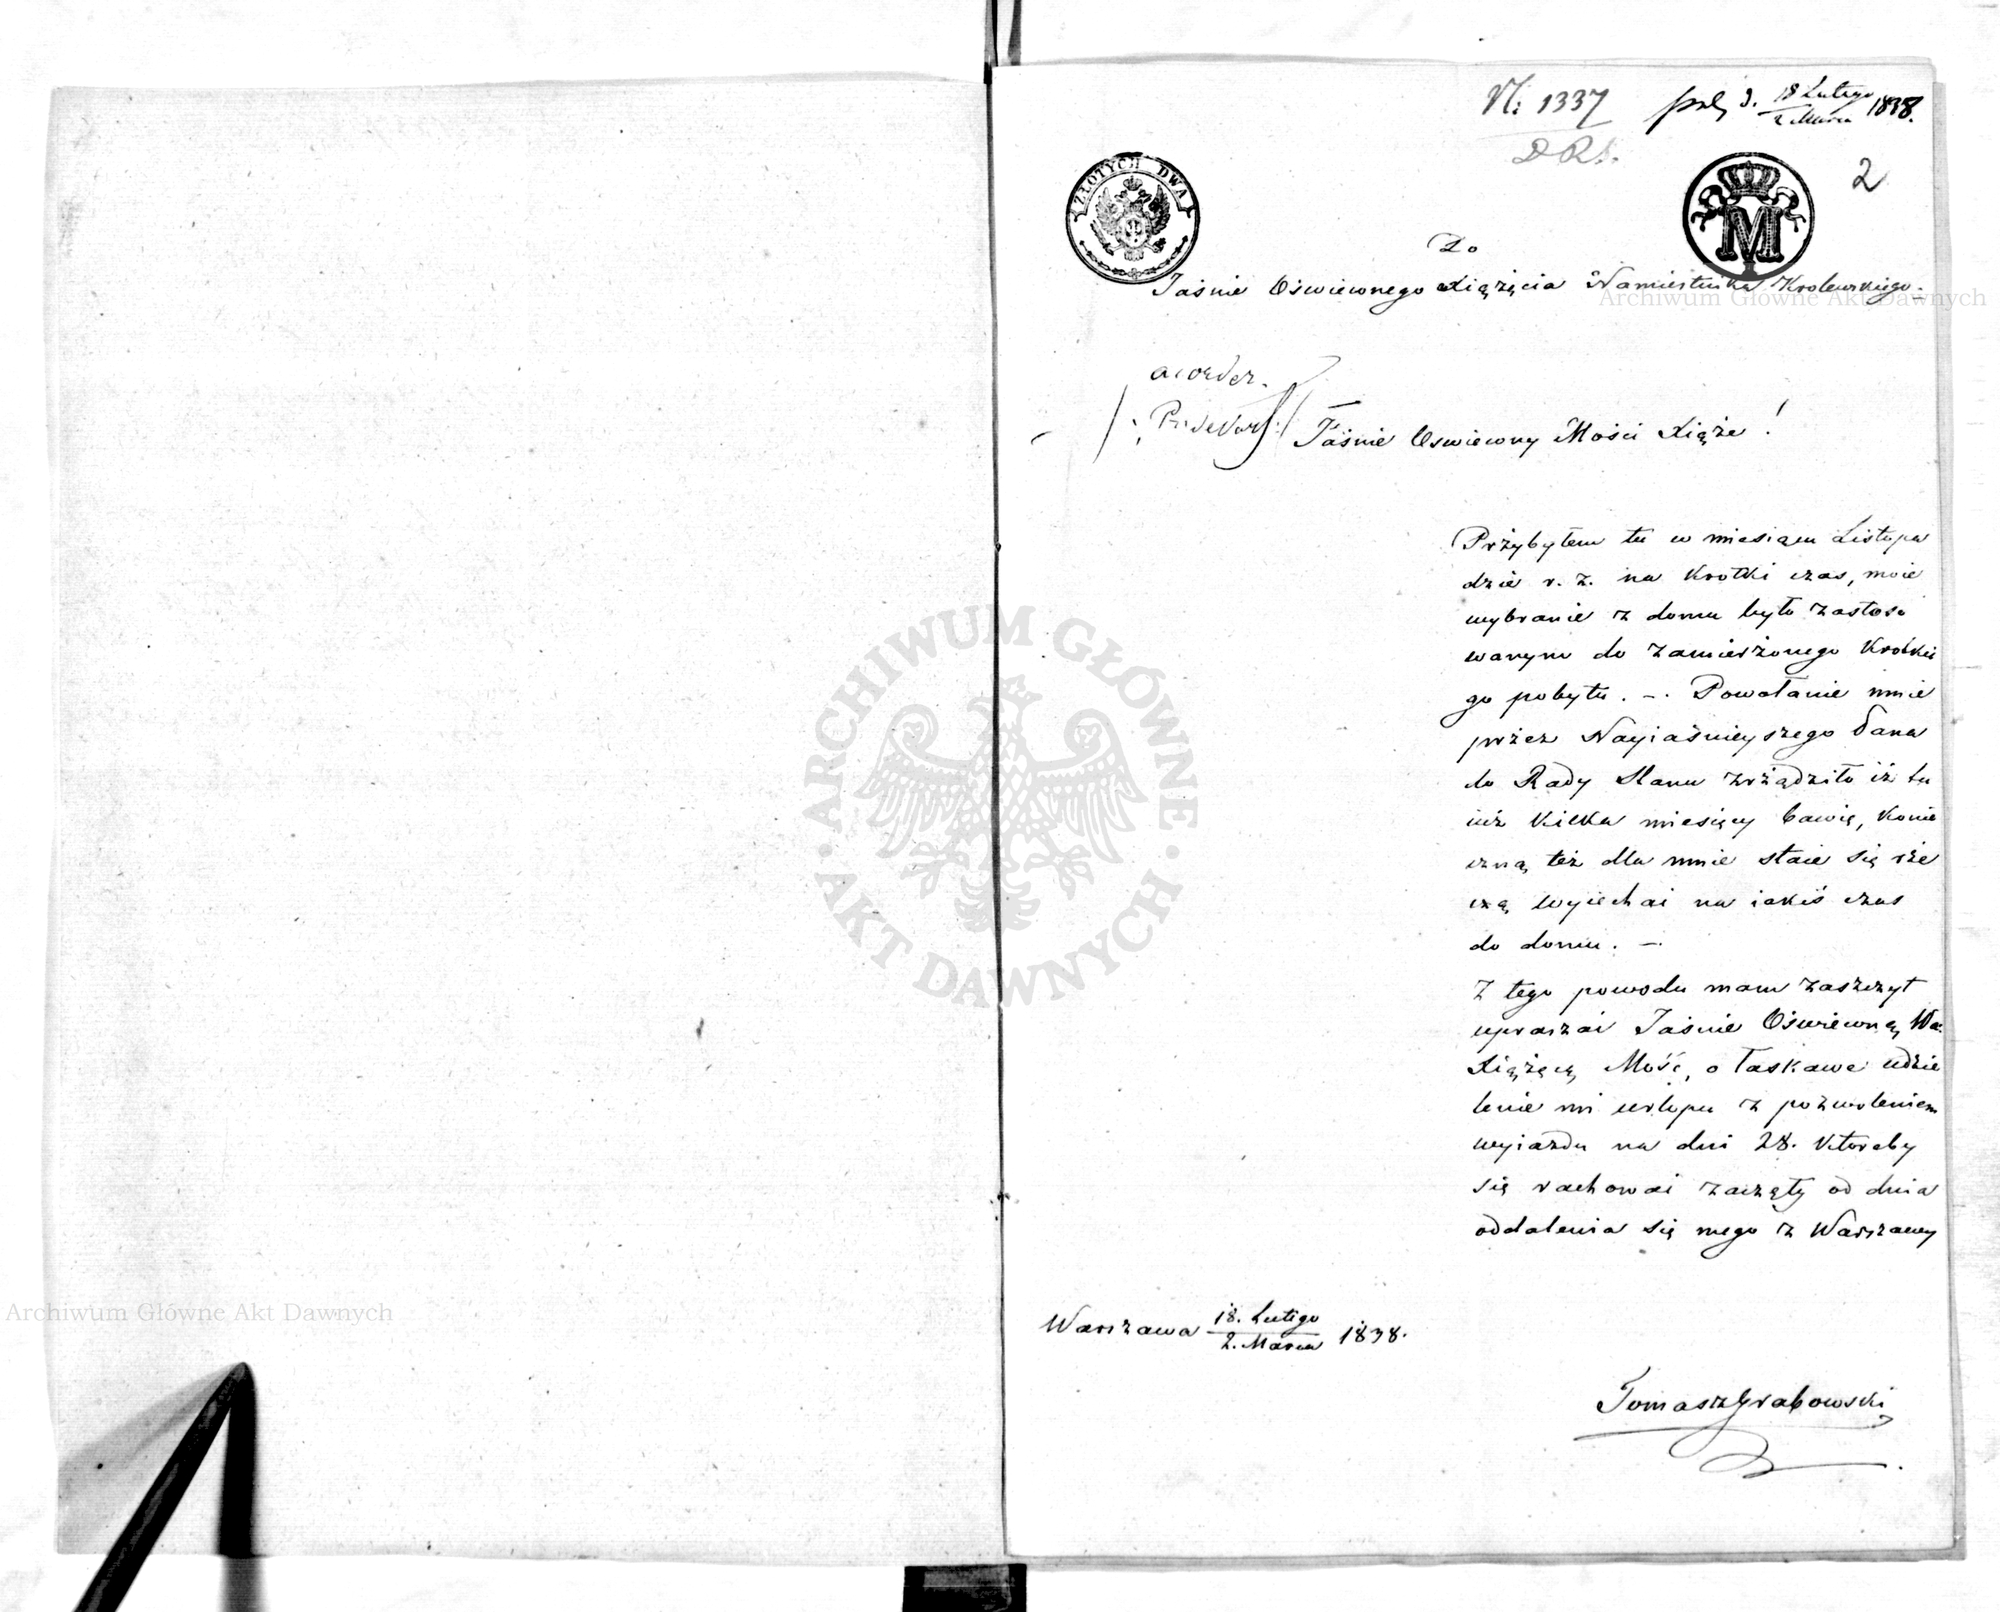 N: 1337 18 Lutego
2 Marca 1838.
2
ZŁOTYCH DWA
M
Do
Jaśnie Oświeconego Xiążęcia Namiestnika Krolewskiego.
Archiwum Główne Akt Dawnych
Jaśnie Oswiecony Mości Xiąże!
Przybyłem tu w miesiącu Listopa
dzie r. z. na krotki czas, moie
wybranie z domu było zastoso
wanym do zamierzonego krotkie
go pobytu. —. Powołanie mnie
przez Nayiaśnieyszego Pana
do Rady Stanu zrządziło iż tu
iuż kilka miesięcy bawię, konie
czną też dla mnie staie się rze
czą wyiechać na iakiś czas
do domu. —.
Z tego powodu mam zaszczyt
upraszać Jaśnie Oświeconą Wa.
Xiążęcą Mość, o łaskawe udzie
lenie mi urlopu z pozwoleniem
wyiazdu na dni 28. ktoreby
się rachować zaczęły od dnia
oddalenia się mego z Warszawy
Warszawa 18. Lutego
2. Marca 1838.
Tomasz Grabowski
ARCHIWUM GŁÓWNE
AKT DAWNYCH
Archiwum Główne Akt Dawnych